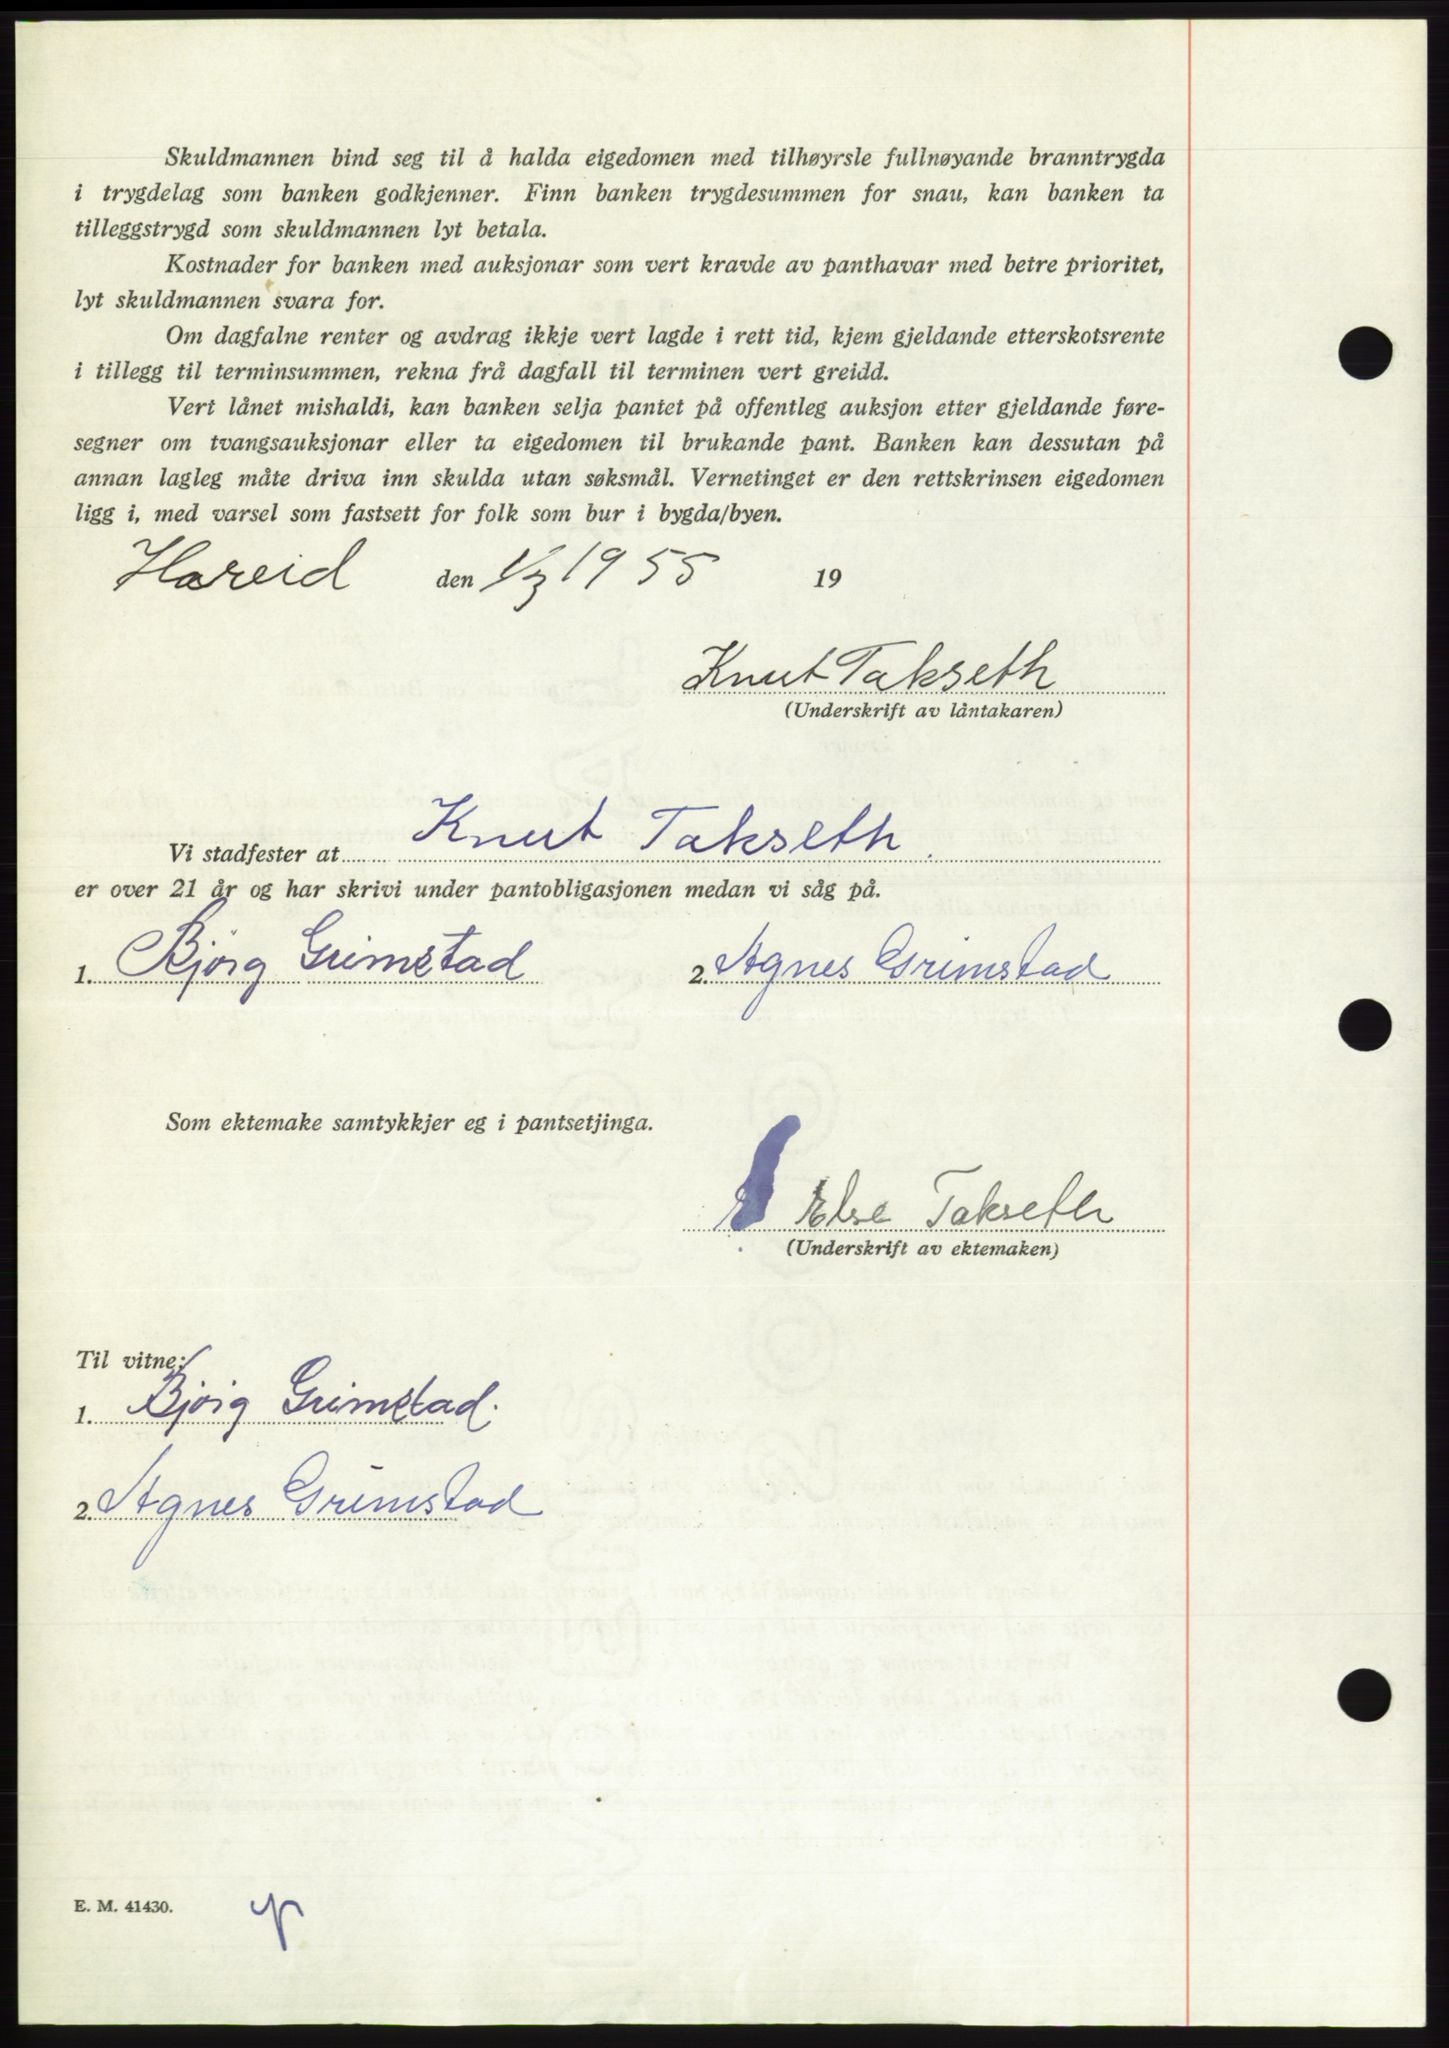 Skuldmannen bind seg til å halda eigedomen med tilhøyrsle fullnøyande branntrygda
i trygdelag som banken godkjenner. Finn banken trygdesummen for snau, kan banken ta
tilleggstrygd som skuldmannen lyt betala.
Kostnader for banken med auksjonar som vert kravde av panthavar med betre prioritet,
lyt skuldmannen svara for.
Om dagfalne renter og avdrag ikkje vert lagde i rett tid, kjem gjeldande etterskotsrente
i tillegg til terminsummen, rekna frå dagfall til terminen vert greidd.
Vert lånet mishaldi, kan banken selja pantet på offentleg auksjon etter gjeldande føre-
segner om tvangsauksjonar eller ta eigedomen til brukande pant. Banken kan dessutan på
annan lagleg måte driva inn skulda utan søksmål. Vernetinget er den rettskrinsen eigedomen
ligg i, med varsel som fastsett for folk som bur i bygda/byen.
Hareid den 1/3 1955 19
Knut Takseth
(Underskrift av låntakaren)
Vi stadfester at Knut Takseth.
er over 21 år og har skrivi under pantobligasjonen medan vi såg på.
1. Bjørg Grimstad 2. Agnes Grimstad
Som ektemake samtykkjer eg i pantsetjinga.
Else Takseth
(Underskrift av ektemaken)
Til vitne:
1. Bjørg Grimstad.
2. Agnes Grimstad
E. M. 41430.